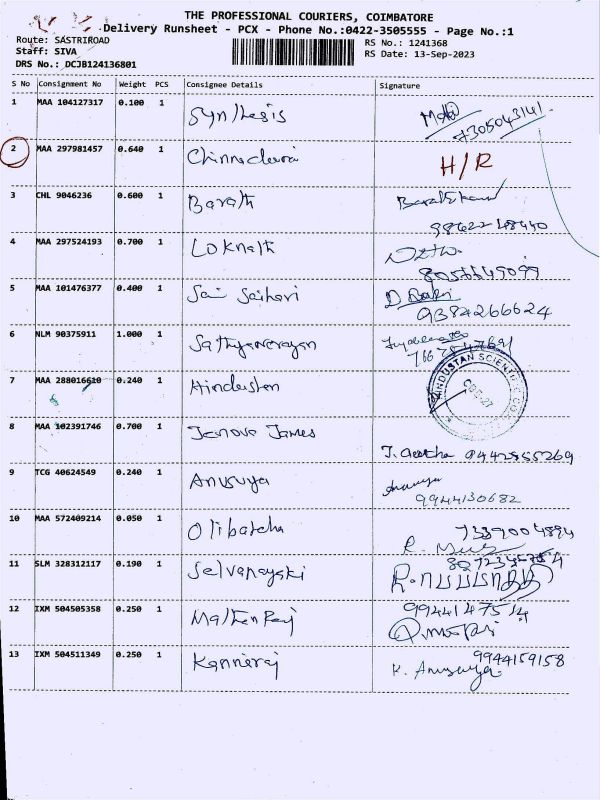 THE PROFESSIONAL COURIERS, COIMBATORE
Delivery Runsheet - PCX - Phone No.:0422-3505555 - Page No.:1
Route: SASTRIROAD
RS No.: 1241368
Staff: SIVA
RS Date: 13-Sep-2023
DRS No.: DCJB124136801
S No Consignment No Weight PCS Consignee Details Signature
1 MAA 104127317 0.100 1 Synthesis
7305043141
2 MAA 297981457 0.640 1 Chinnadurai H/R
3 CHL 9046236 0.600 1 Barath
4 MAA 297524193 0.700 1 Loknath
5 MAA 101476377 0.400 1 Sai Saihari
9384266624
6 NLM 90375911 1.000 1 Sathyanarayan
7 MAA 288016610 0.240 1 Hindustan
HINDUSTAN SCIENTIFIC
CBE-27
8 MAA 102391746 0.700 1 Jenova James
J. Geetha 9442855269
9 TCG 40624549 0.240 1 Anusuya Anusuya
9944130682
10 MAA 572409214 0.050 1 Olibatcha
7339004894
11 SLM 328312117 0.190 1 Selvanayaki
12 IXM 504505358 0.250 1
9944147514
13 IXM 504511349 0.250 1 Kanniraj
9944159158
K. Anusuya